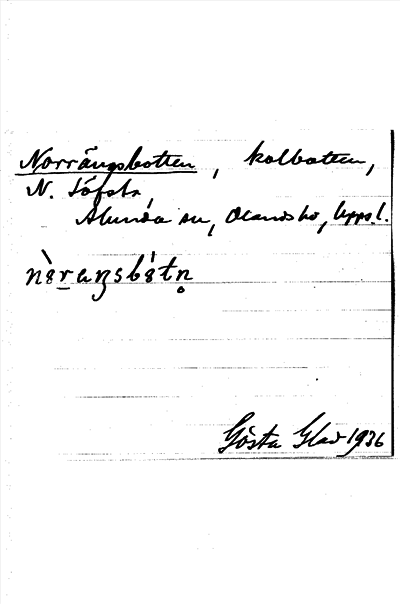 Norrängsbotten, kolbotten,
N. Löfsta
Alunda sn, Olands hd, Uppl.
Gösta Glad 1936